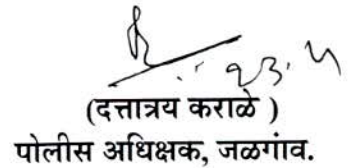 (दत्तात्रय कराळे )
पोलीस अधिक्षक, जळगांव.